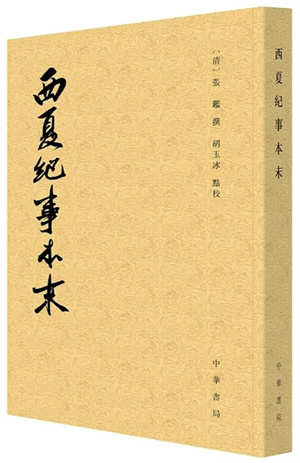 西夏紀事本末
〔清〕張鑑 撰 胡玉冰 點校
中華書局
西夏紀事本末
中華書局